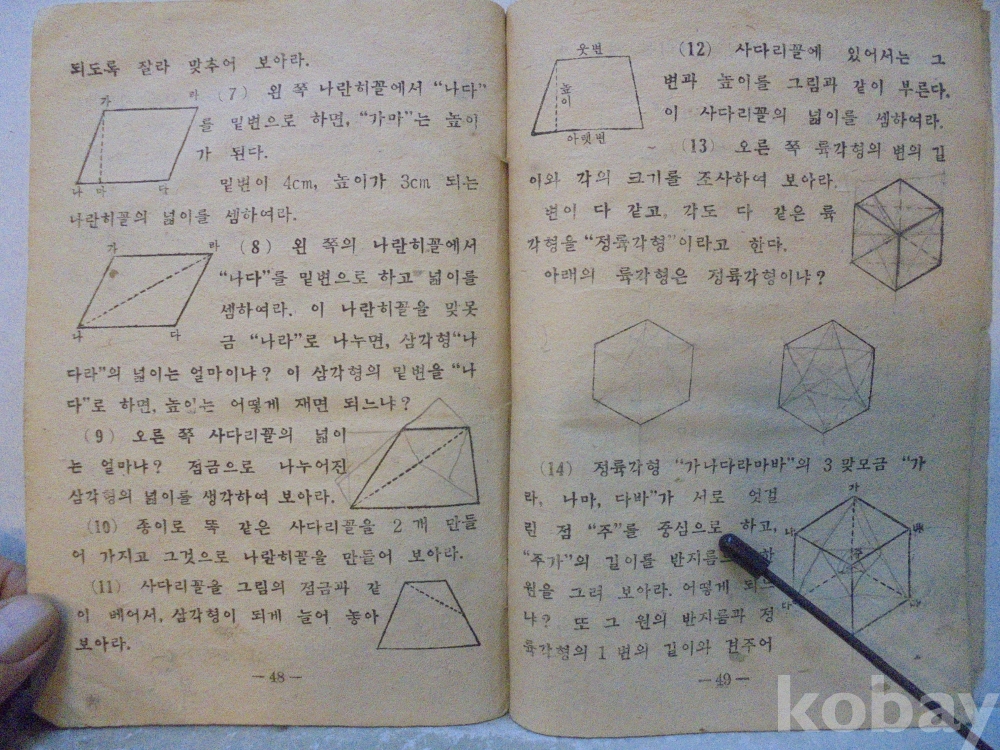 되도록 잘라 맞추어 보아라.
(7) 왼 쪽 나란히꼴에서 “나다”
를 밑변으로 하면, “가마”는 높이
가 된다.
밑변이 4cm, 높이가 3cm 되는
나란히꼴의 넓이를 셈하여라.
가 라
나 마 다
(8) 왼 쪽의 나란히꼴에서
“나다”를 밑변으로 하고 넓이를
셈하여라. 이 나란히꼴을 맞못
금 “나라”로 나누면, 삼각형“나
다라”의 넓이는 얼마이냐? 이 삼각형의 밑변을 “나
다”로 하면, 높이는 어떻게 재면 되느냐?
가 라
나 다
(9) 오른 쪽 사다리꼴의 넓이
는 얼마냐? 점금으로 나누어진
삼각형의 넓이를 생각하여 보아라.
(10) 종이로 똑 같은 사다리꼴을 2 개 만들
어 가지고 그것으로 나란히꼴을 만들어 보아라.
(11) 사다리꼴을 그림의 점금과 같
이 베어서, 삼각형이 되게 늘어 놓아
보아라.
— 48 —
웃변
높이
아랫변
(12) 사다리꼴에 있어서는 그
변과 높이를 그림과 같이 부른다.
이 사다리꼴의 넓이를 셈하여라.
(13) 오른 쪽 륙각형의 변의 길
이와 각의 크기를 조사하여 보아라.
변이 다 같고, 각도 다 같은 륙
각형을 “정륙각형”이라고 한다.
아래의 륙각형은 정륙각형이냐?
(14) 정륙각형 “가나다라마바”의 3 맞모금 “가
라, 나마, 다바”가 서로 엇걸
린 점 “주”를 중심으로 하고,
“주가”의 길이를 반지름
원을 그려 보아라. 어떻게 되느
냐? 또 그 원의 반지름과 정
륙각형의 1 변의 길이와 견주어
가
나
다
바
주
— 49 —
kobay